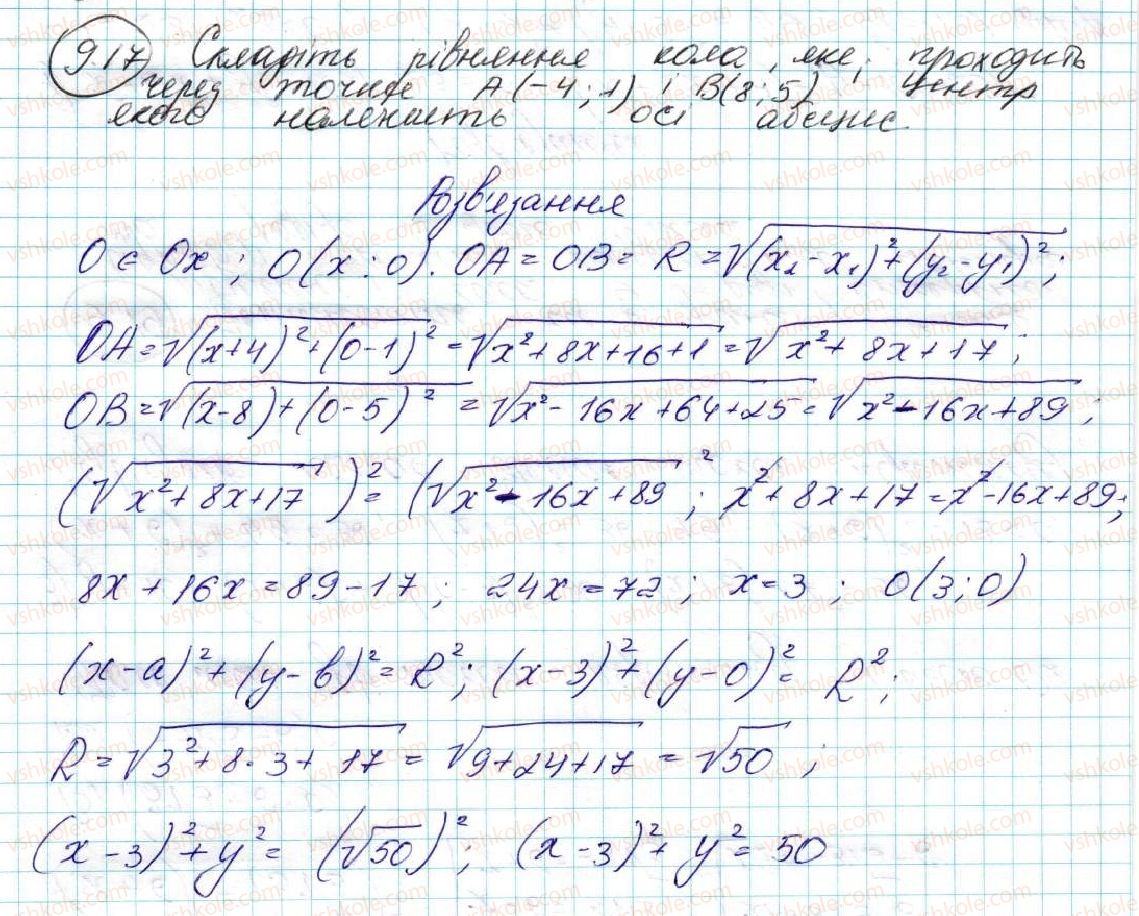 9.17 Складіть рівняння кола, яке проходить
через точки A(-4;1) і B(8;5), центр
якого належить осі абсцис.
Розв'язання
O ∈ Ox; O(x;0). OA = OB = R = √((x₂-x₁)²+(y₂-y₁)²);
OA = √((x+4)²+(0-1)²) = √(x²+8x+16+1) = √(x²+8x+17);
OB = √((x-8)+(0-5)²) = √(x²-16x+64+25) = √(x²-16x+89);
(√(x²+8x+17))² = (√(x²-16x+89)²; x²+8x+17 = x²-16x+89;
8x+16x = 89-17; 24x = 72; x = 3; O(3;0)
(x-a)²+(y-b)² = R²; (x-3)²+(y-0)² = R²;
R = √(3²+8·3+17) = √(9+24+17) = √50;
(x-3)²+y² = (√50)²; (x-3)²+y² = 50